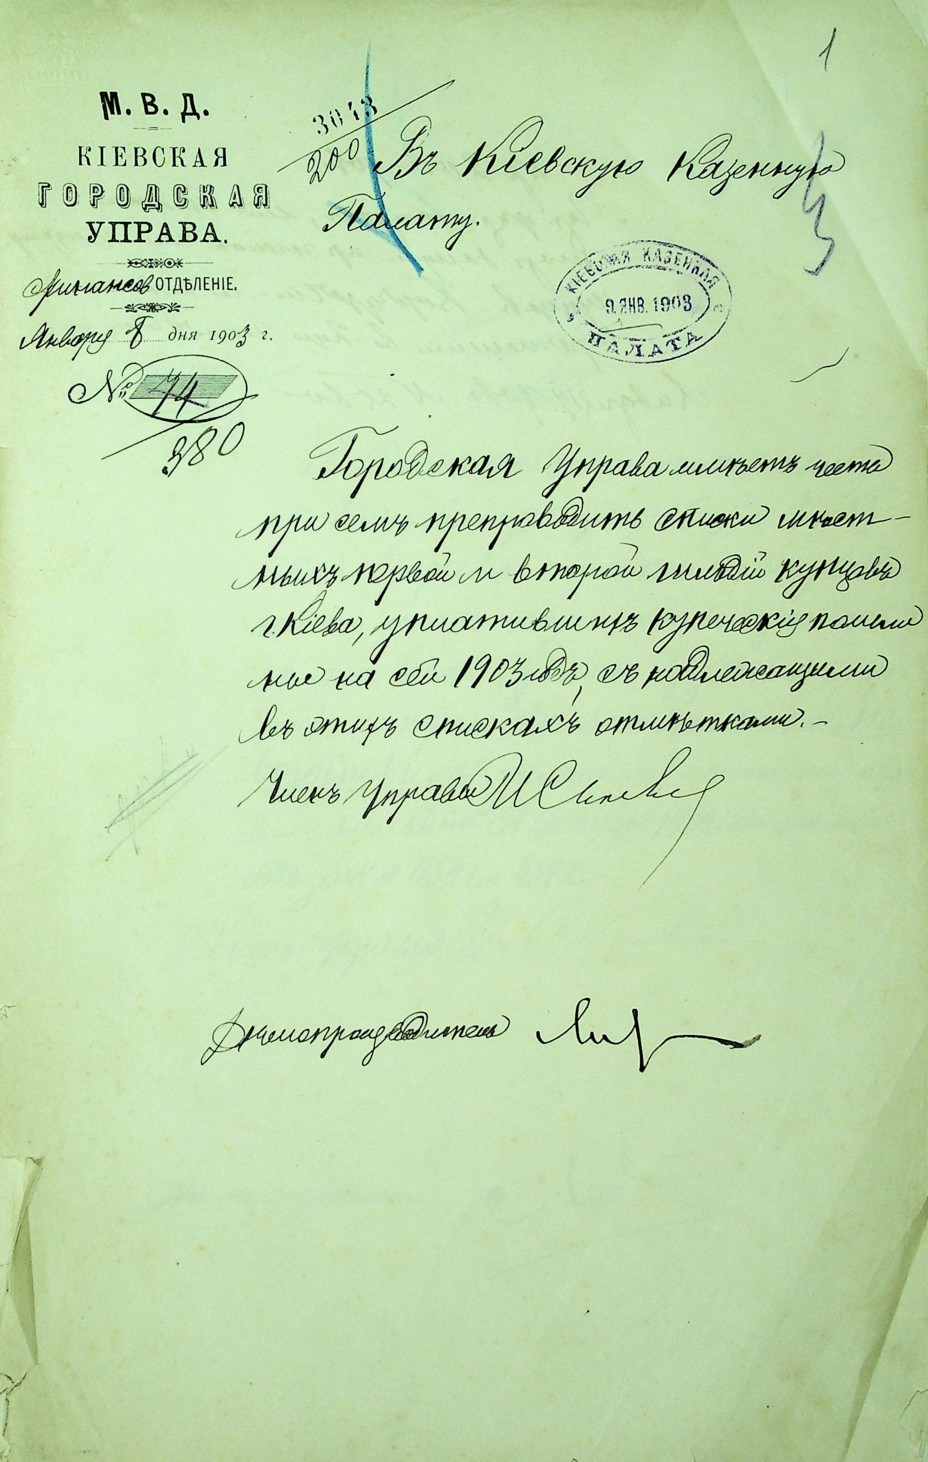 1
М. В. Д.
КІЕВСКАЯ
ГОРОДСКАЯ
УПРАВА.
Финансов ОТДѢЛЕНІЕ.
Января 8 дня 1903 г.
№ 74
380
3048
200
Въ Кіевскую Казенную
Палату.
КІЕВСКАЯ КАЗЕННАЯ
9 ЯНВ. 1903
ПАЛАТА
Городская Управа имѣетъ честь
при семъ препроводить списки мѣст-
ныхъ первой и второй гильдій купцовъ
г. Кіева, уплатившихъ купеческія пошли
ны на сей 1903 годъ, съ надлежащими
въ этихъ спискахъ отмѣтками.-
Членъ Управы
Дѣлопроизводитель